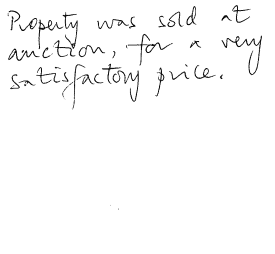 Property was sold at
auction, for a very
satisfactory price.